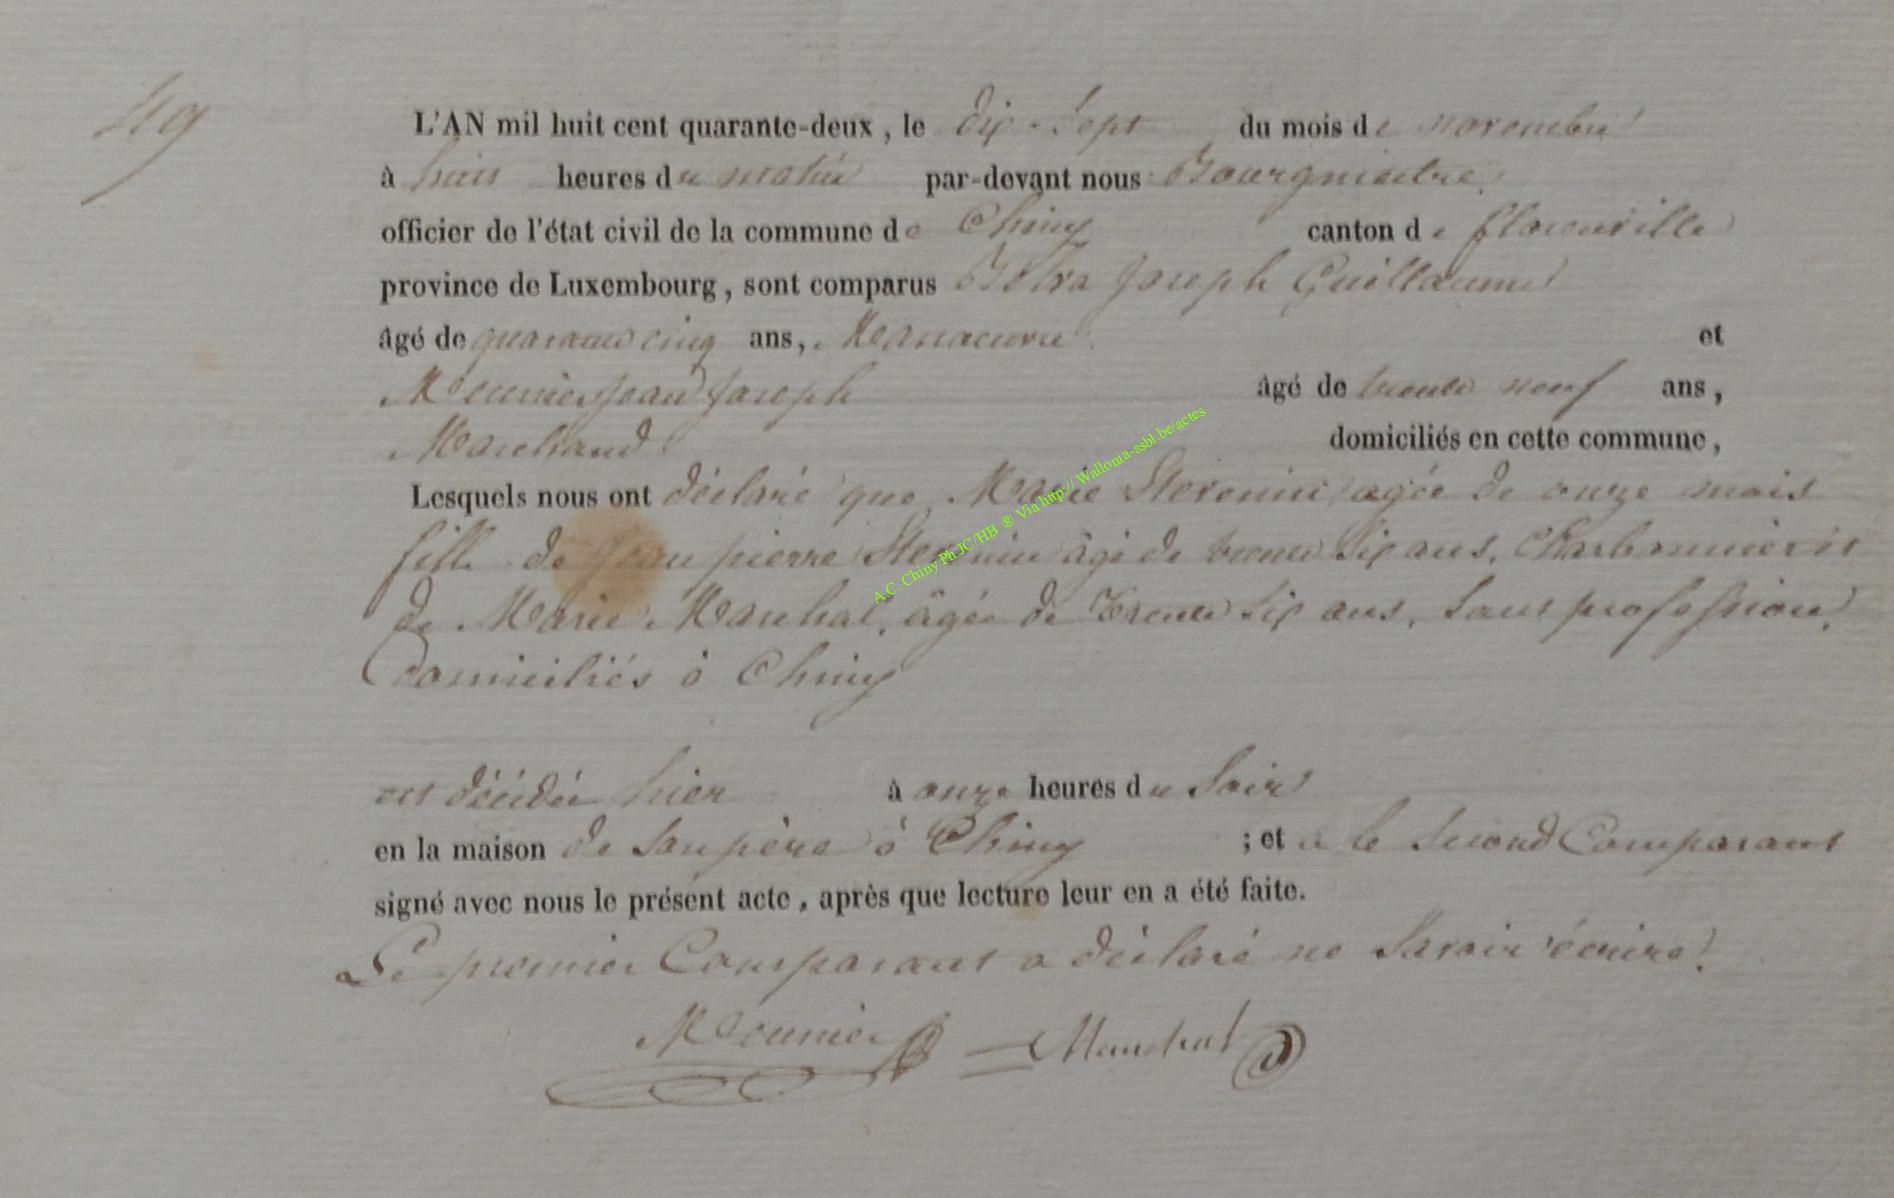 49
L'AN mil huit cent quarante-deux, le dix-sept du mois de novembre
à huit heures du matin par-devant nous Bourgmestre
officier de l'état civil de la commune de Chiny canton de florenville
province de Luxembourg, sont comparus Joseph Guillaume
âgé de quarante cinq ans, Manoeuvre et
Meunier Jean Joseph âgé de trente neuf ans,
Marchand domiciliés en cette commune,
Lesquels nous ont déclaré que Marie Stevenin agée de onze mois
fille de Jean pierre Stevenin âgé de trente six ans, Charbonnier et
de Marie Marchal, âgée de Trente six ans, sans profession,
domiciliés à Chiny
est décédée hier à onze heures du soir
en la maison de son père à Chiny ; et a le second Comparant
signé avec nous le présent acte, après que lecture leur en a été faite.
Le premier Comparant a déclaré ne savoir écrire.
Meunier Marchal
A.C. Chiny Ph JC/HB ® Via http:// Wallonia-asbl.be/actes